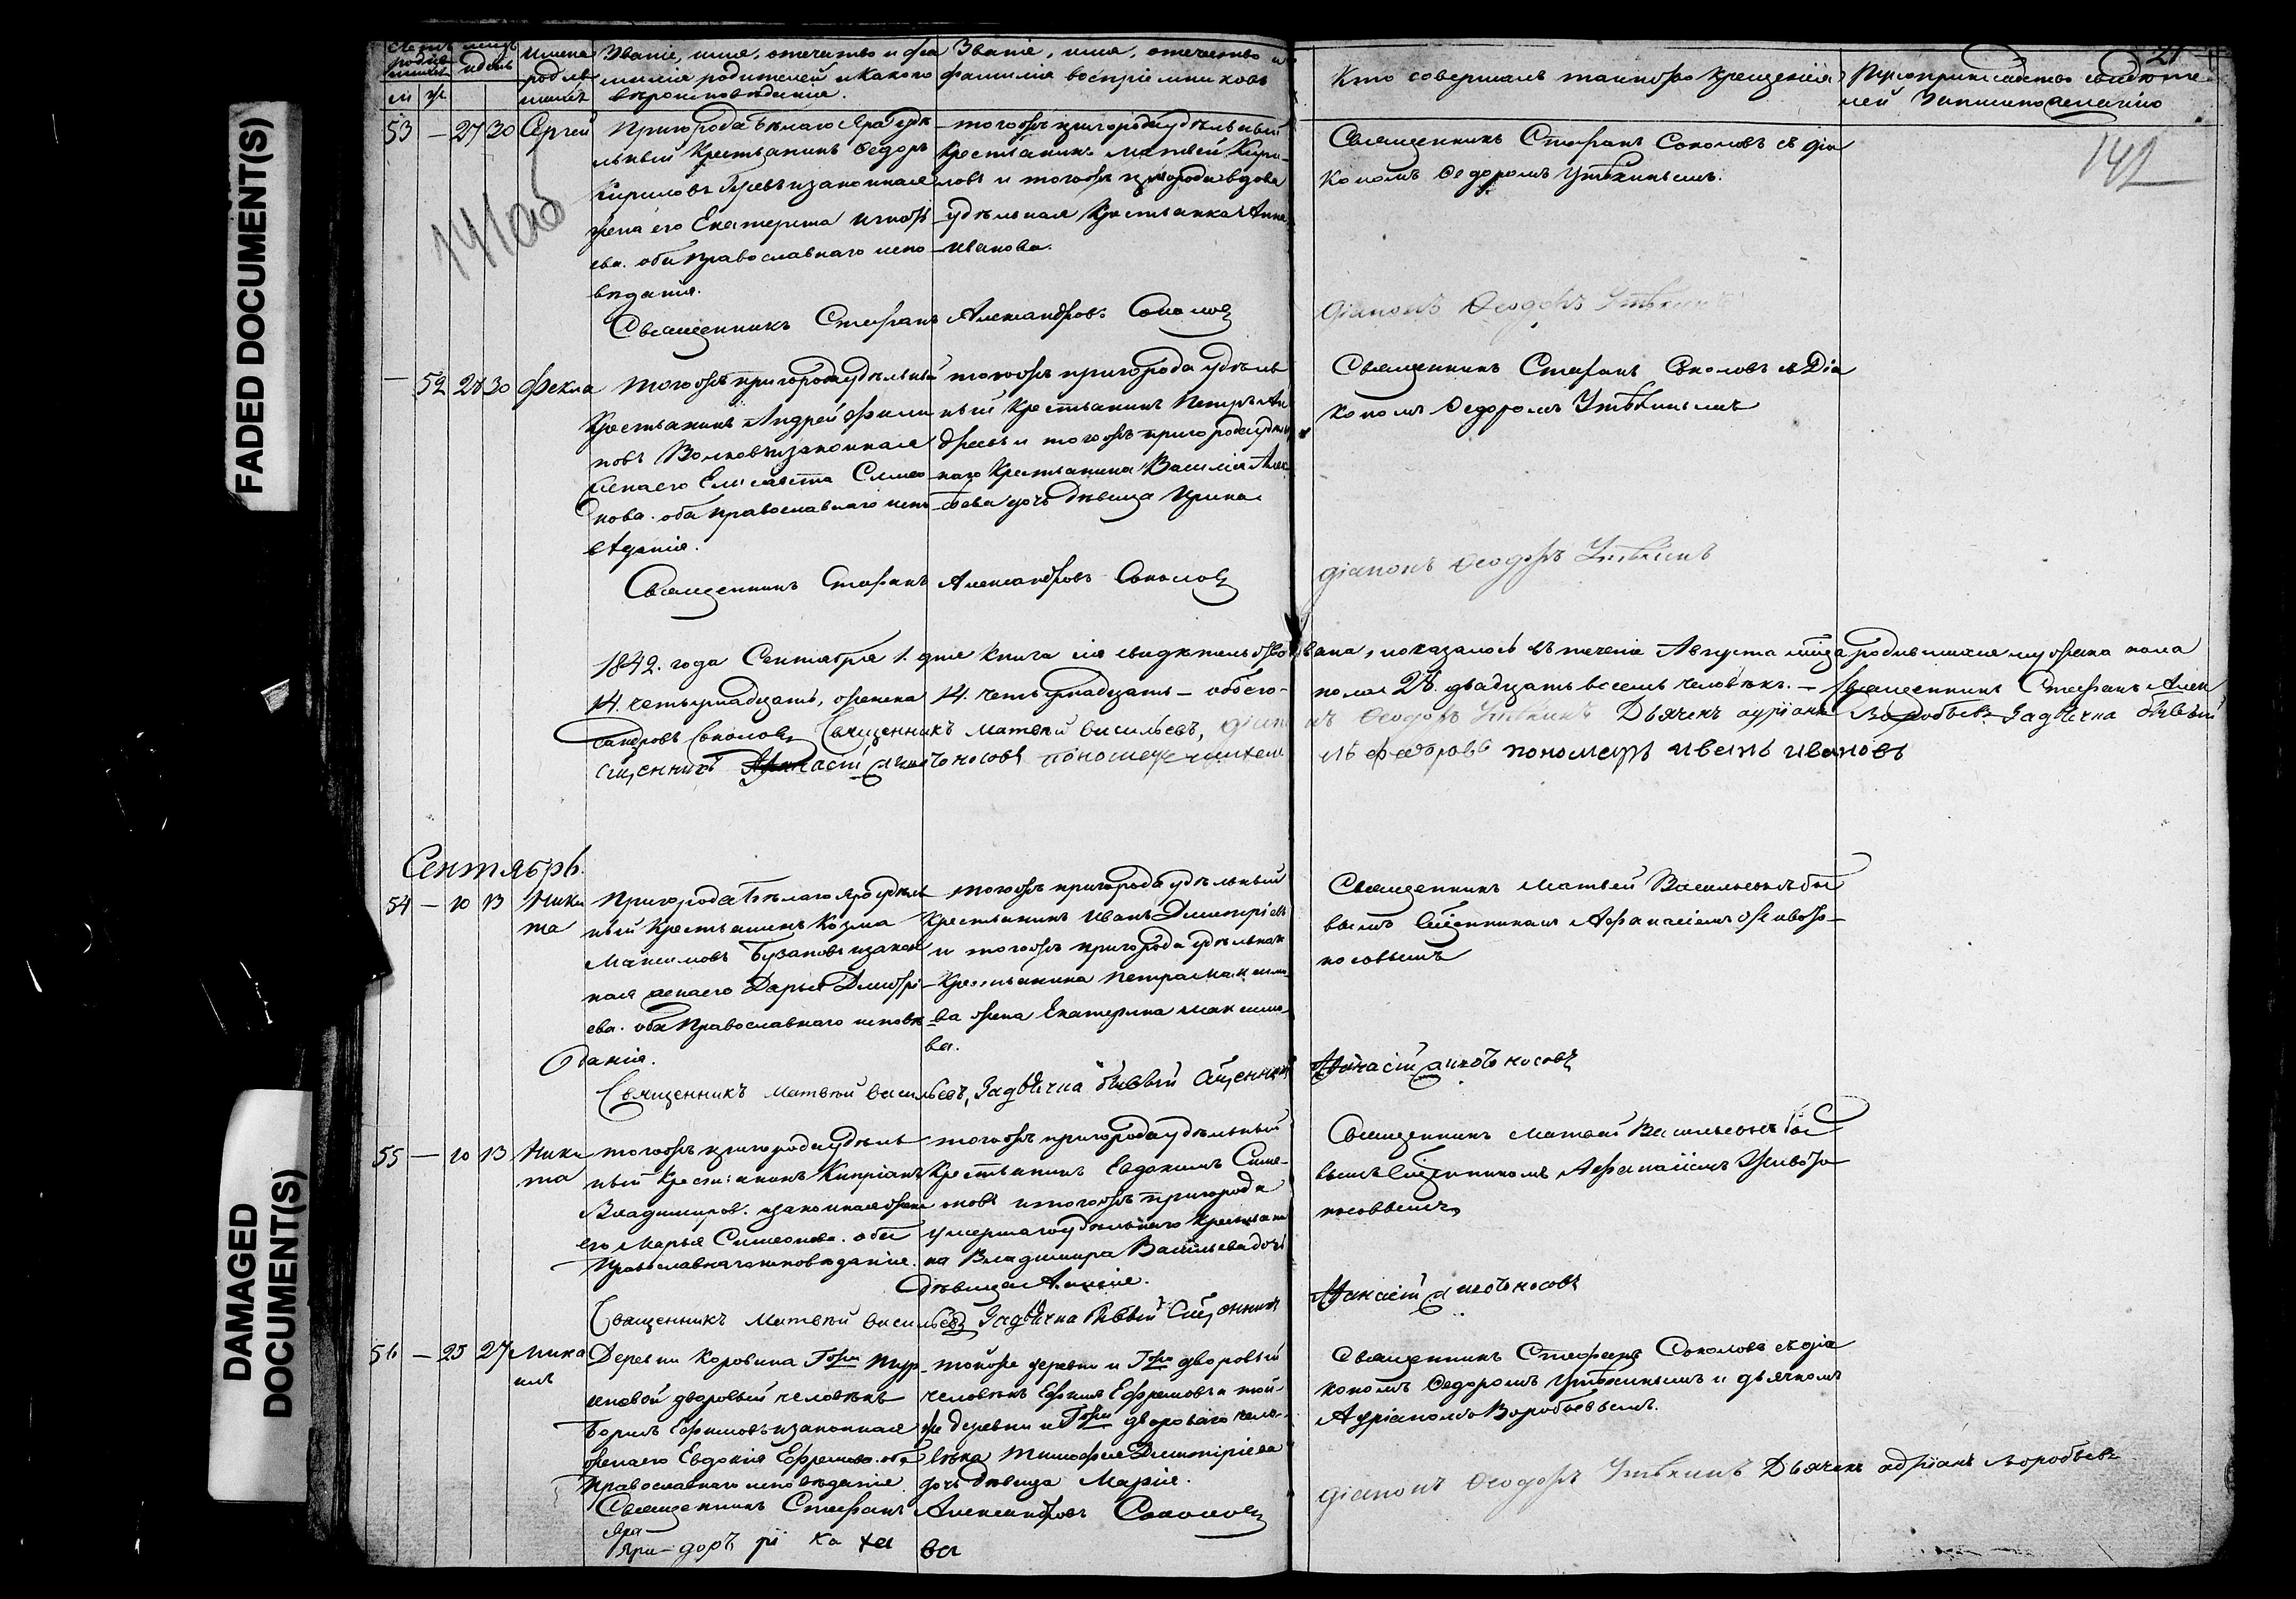 FADED DOCUMENT(S)
DAMAGED DOCUMENT(S)
имена
Званіе, имя, отечество и фа
Званіе, имя, отечество и
миліи родителей и какого
фамиліи воспріемниковъ
вѣроисповѣданія.
Кто совершалъ таинство крещенія
Рукоприкладство свидѣте
лей записи по желанію
м ж
21
141 об
142
53 — 27 30 Сергей
Пригорода Бѣлаго Яра удѣ
льный крестьянинъ Федоръ
Кириловъ и законная
жена его Екатерина
ева. оба православнаго испо
вѣданія.
тогожъ пригорода удѣльный
крестьянинъ Матвей Кири
ловъ и тогожъ пригорода вдова
удѣльная крестьянка Анна
Иванова.
Священникъ Стефанъ Соколовъ съ діа
кономъ Федоромъ Утѣхинымъ.
Священникъ Стефанъ Александровъ Соколовъ
діаконъ Феодоръ Утѣхинъ
— 52 28 30 Фекла
тогожъ пригорода удѣльный
крестьянинъ Андрей Филип
повъ Волковъ и законная
жена его Елисавета Симео
нова. оба православнаго испо
вѣданія.
тогожъ пригорода удѣль
ный крестьянинъ Петръ Ан
дреевъ и тогожъ пригорода удѣль
наго крестьянина Василія Алек
сѣева дочь дѣвица Ирина
Священникъ Стефанъ Соколовъ съ Діа
кономъ Федоромъ Утѣхинымъ
Священникъ Стефанъ Александровъ Соколовъ
діаконъ Феодоръ Утѣхинъ
1842. года Сентября 1. дня книга сія свидѣтельствована, и оказалось въ теченіе Августа мца родившихся мужеска пола
14. четырнадцать, женска 14. четырнадцать — обоего
пола 28. двадцать восемь человѣкъ. — Священникъ Стефанъ Алек
сандровъ Соколовъ Священникъ Матвѣй Васильевъ, діаконъ Феодоръ Утѣхинъ Дьячекъ Адріанъ Воробьевъ Заштатный бывый
сщенникъ Афанасій Живоносовъ пономарь
Федоровъ пономарь Иванъ Ивановъ
Сентябрь.
54 — 10 13 Ники
та
Пригорода Бѣлаго Яра удѣль
ный крестьянинъ Козма
Максимовъ Бузановъ и закон
ная жена его Дарья Димитрі
ева. оба православнаго исповѣ
данія.
тогожъ пригорода удѣльный
крестьянинъ Иванъ Димитріевъ
и тогожъ пригорода удѣльнаго
крестьянина Петра Максимо
ва жена Екатерина Максимо
ва.
Священникъ Матвей Васильевъ съ бы
вымъ сщенникомъ Афанасіемъ Живо
носовымъ
Священникъ Матвѣй Васильевъ, бывый сщенникъ
Афанасій Живоносовъ
55 — 10 13 Ники
та
тогожъ пригорода удѣль
ный крестьянинъ Кипріанъ
Владимировъ. и законная жена
его Марья Симеонова. оба
православнаго исповѣданія.
тогожъ пригорода удѣльный
крестьянинъ Евдокимъ Симе
оновъ и тогожъ пригорода
умершаго удѣльнаго крестьяни
на Владимира Васильева дочь
дѣвица
Священникъ Матвей Васильевъ съ бы
вымъ сщенникомъ Афанасіемъ Живо
носовымъ
Священникъ Матвѣй Васильевъ бывый сщенникъ
Афанасій Живоносовъ
56 — 25 27 Миха
илъ
Деревни Коровина Гжи
дворовый человѣкъ
Борисъ Ефимовъ и законная
жена его Евдокія Ефремова. оба
православнаго исповѣданія.
тойже деревни и Гжи дворовый
человѣкъ Ефимъ Ефремовъ и той
же деревни и Гжи двороваго чело
вѣка Тимофея Димитріева
дочь дѣвица Марія.
Священникъ Стефанъ Соколовъ съ діа
кономъ Федоромъ Утѣхинымъ и дьячкомъ
Адріаномъ Воробьевымъ.
Священникъ Стефанъ Александровъ Соколовъ
діаконъ Феодоръ Утѣхинъ Дьячекъ Адріанъ Воробьевъ
ва